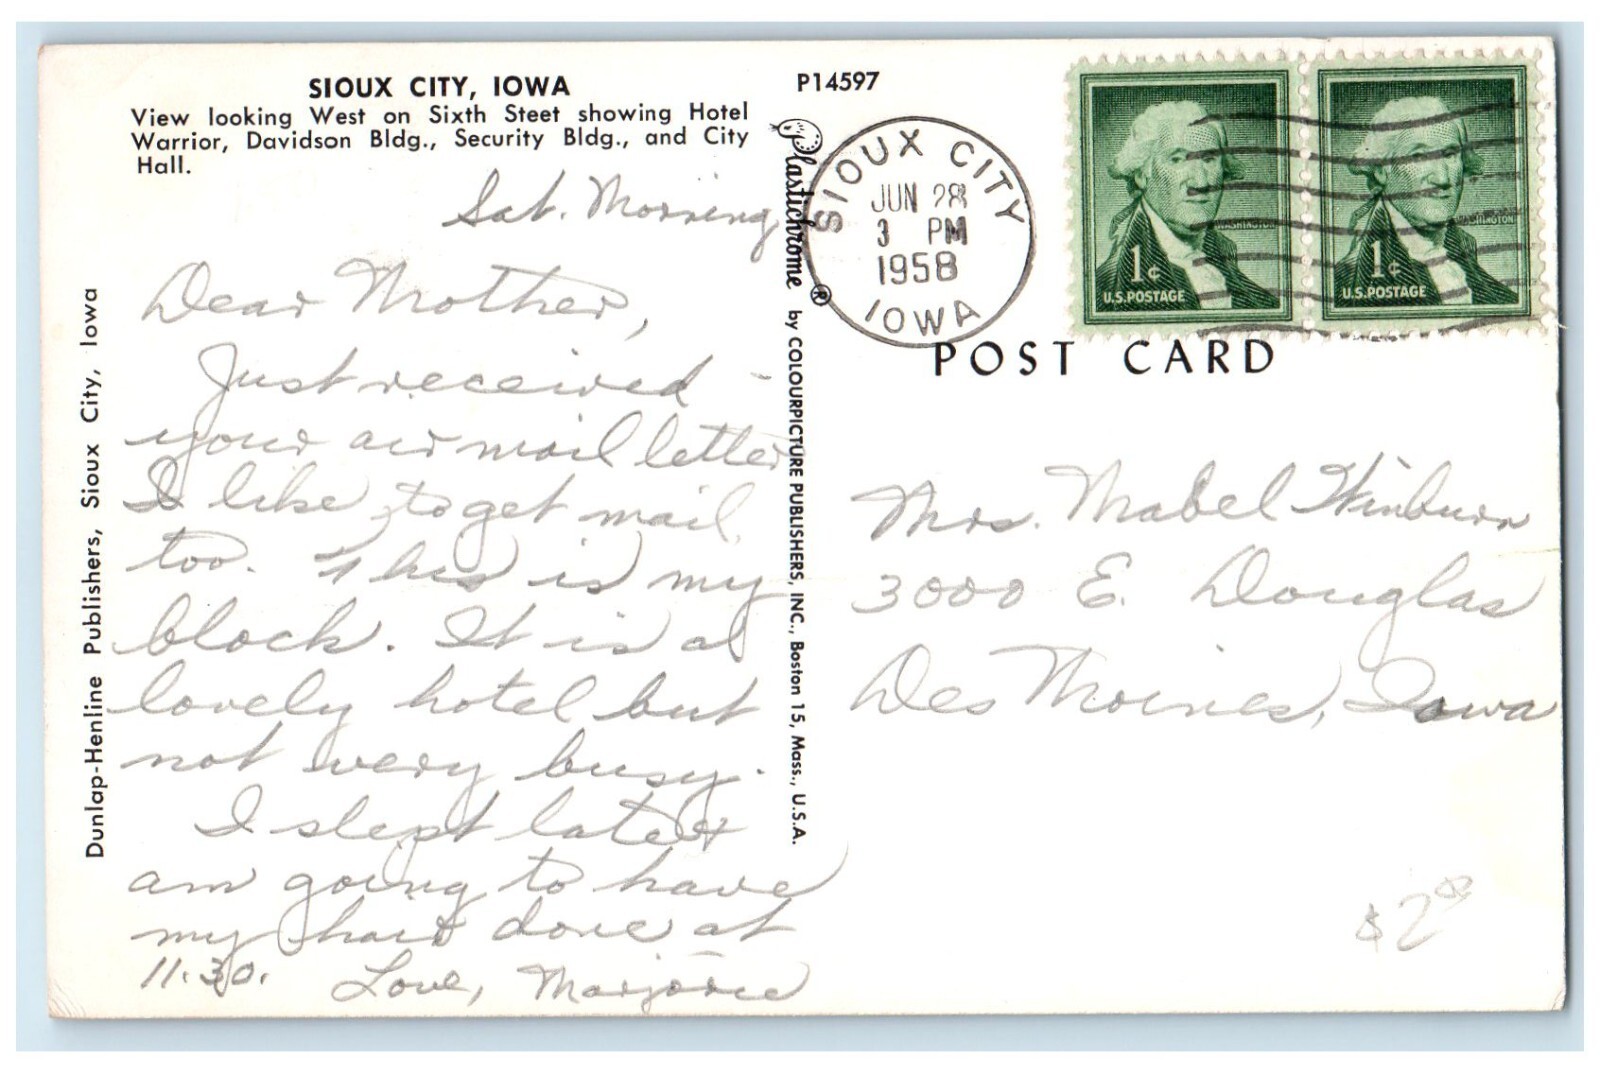 SIOUX CITY, IOWA
View looking West on Sixth Steet showing Hotel
Warrior, Davidson Bldg., Security Bldg., and City
Hall.
P14597
Sat. Morning
Dear Mother,
Just received
your air mail letter
I like to get mail
too. This is my
block. It is a
lovely hotel but
not very busy.
I slept late &
am going to have
my hair done at
11:30. Love, Marjorie
Dunlap-Henline Publishers, Sioux City, Iowa
Plastichrome ® by COLOURPICTURE PUBLISHERS, INC., Boston 15, Mass., U.S.A.
SIOUX CITY
JUN 28
3 PM
1958
IOWA
WASHINGTON
1¢
U.S.POSTAGE
WASHINGTON
1¢
U.S.POSTAGE
POST CARD
Mrs. Mabel Winburn
3000 E. Douglas
Des Moines, Iowa
$2.00